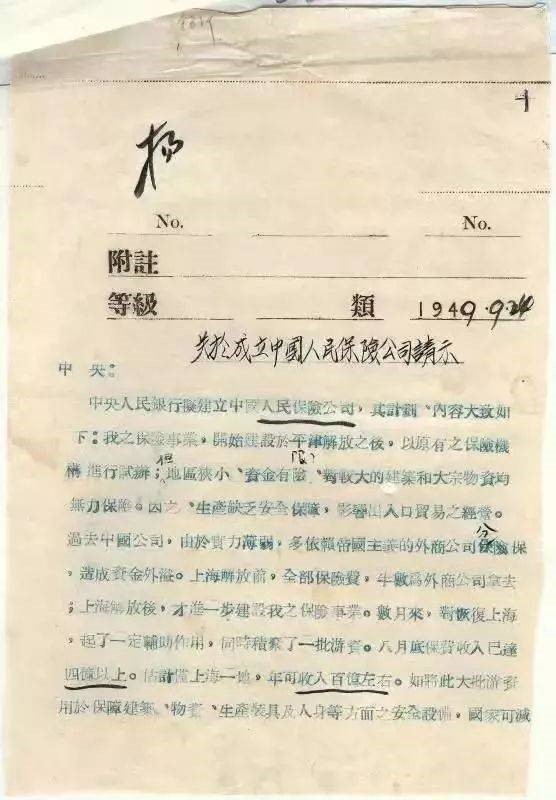 杨
No.
No.
附註
等級
類
1949.9.24
关於成立中國人民保險公司請示
中央：
中央人民銀行擬建立中國人民保險公司，其計劃、內容大致如
下：我之保險事業，開始建設於平津解放之後，以原有之保險機
構進行試辦；但地區狹小、資金有限、對較大的建築和大宗物資均
無力保險。因之、生產缺乏安全保障，影響出入口貿易之經營。
過去中國公司，由於實力薄弱，多依賴帝國主義的外商公司分保
，造成資金外溢。上海解放前，全部保險費，半數為外商公司拿去
；上海解放後，才進一步建設我之保險事業。數月來，對恢復上海
，起了一定輔助作用，同時積聚了一批游資。八月底保費收入已達
四億以上。估計僅上海一地，年可收入百億左右。如將此大批游資
用於保障建築、物資、生產裝具及人身等方面之安全設備，國家可減